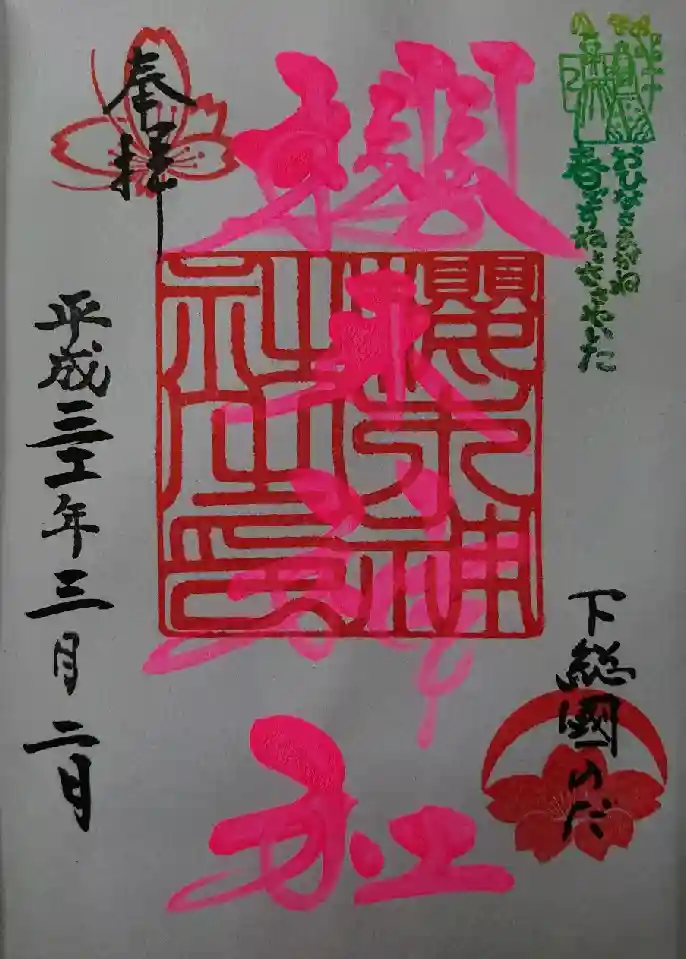 おひなさまだね
春ですねときめいた
奉拝
櫻木神社
櫻木神社之印
平成三十一年三月二日
下総國のだ